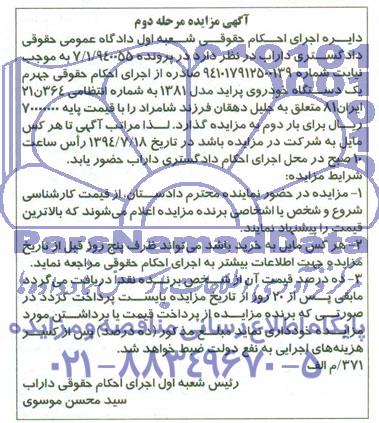 آگهی مزایده مرحله دوم
دایره اجرای احکام حقوقی شعبه اول دادگاه عمومی حقوقی
دادگستری داراب در نظر دارد در پرونده ۷/۱/۹۴۰۰۵۵ به موجب
نیابت شماره ۹۴۱۰۱۷۹۱۲۵۰۰۱۳۹ صادره از اجرای احکام حقوقی جهرم
یک دستگاه خودروی پراید مدل ۱۳۸۱ به شماره انتظامی ۳۶۴ن۲۱
ایران۸۱ متعلق به جلیل دهقان فرزند شامراد را با قیمت پایه ۷۰۰۰۰۰۰۰
ریال برای بار دوم به مزایده گذارد. لذا مراتب آگهی تا هر کس
مایل به شرکت در مزایده باشد در تاریخ ۱۳۹۴/۷/۱۸ رأس ساعت
۱۰ صبح در محل اجرای احکام دادگستری داراب حضور یابد.
شرایط مزایده:
۱- مزایده در حضور نماینده محترم دادستان، از قیمت کارشناسی
شروع و شخص یا اشخاصی برنده مزایده اعلام می‌شوند که بالاترین
قیمت را پیشنهاد نمایند.
۲- هر کس مایل به خرید باشد می‌تواند ظرف پنج روز قبل از تاریخ
مزایده جهت اطلاعات بیشتر به اجرای احکام حقوقی مراجعه نماید.
۳- ده درصد قیمت آن از شخص برنده نقداً دریافت می‌گردد
مابقی پس از ۲۰ روز از تاریخ مزایده بایست پرداخت گردد در
صورتی که برنده مزایده از پرداخت قیمت یا برداشتن مورد
مزایده خودداری نماید مبلغ مذکور (ده درصد) پس از کسر
هزینه‌های اجرایی به نفع دولت ضبط خواهد شد.
۳۷۱/م الف
رئیس شعبه اول اجرای احکام حقوقی داراب
سید محسن موسوی
۰۲۱-۸۸۳۴۹۶۷۰-۵